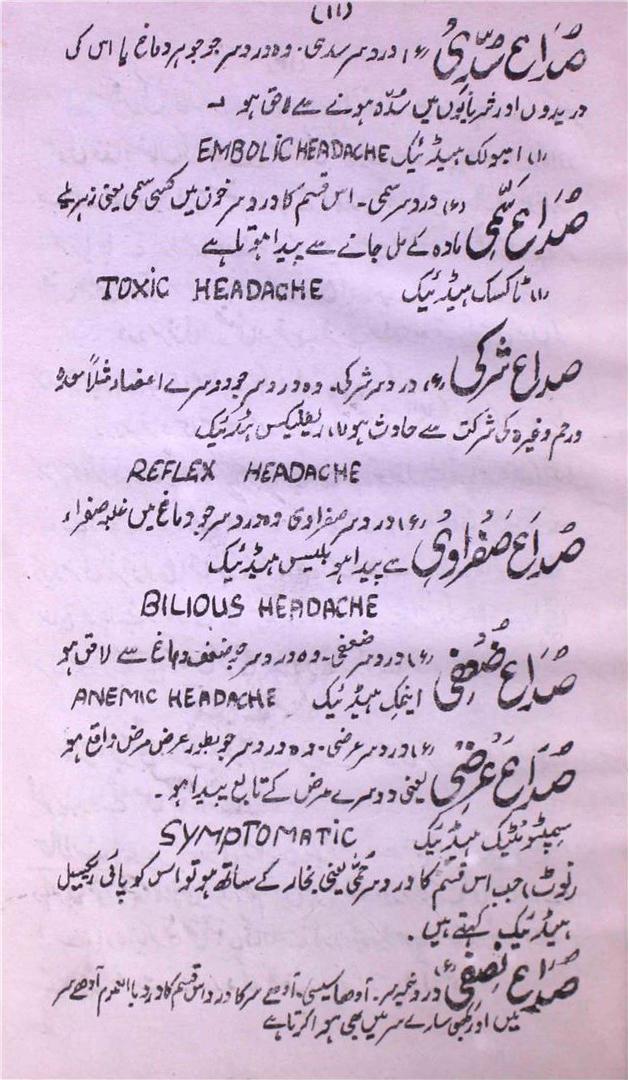 (۱۱)
صُدَاع سُدّی (ع) دردسر سدی۔ وہ دردسر جو جوہر دماغ یا اس کی
وریدوں اور شریانوں میں سُدّہ ہونے سے لاحق ہو۔
(۱) امبولک ہیڈئیک EMBOLIC HEADACHE
صُدَاع سَمّی (ع) دردسر سمی۔ اس قسم کا دردسر خون میں کسی سمی یعنی زہریلے
مادہ کے مل جانے سے پیدا ہوتا ہے
(۱) ٹاکسک ہیڈئیک TOXIC HEADACHE
صداع شرکی (ع) دردسر شرکی۔ وہ دردسر جو دوسرے اعضاء مثلاً معدہ
ورحم وغیرہ کی شرکت سے حادث ہو (۱) ریفلیکس ہیڈئیک
REFLEX HEADACHE
صُدَاع صَفراوی (ع) دردسر صفراوی وہ دردسر جو دماغ میں غلبہ صفراء
سے پیدا ہو بلیس ہیڈئیک
BILIOUS HEADACHE
صُدَاع ضُعفی (ع) دردسر ضعفی۔ وہ دردسر جو ضعف دماغ سے لاحق ہو
اینمک ہیڈئیک ANEMIC HEADACHE
صُدَاع عَرَضی (ع) دردسر عرضی۔ وہ دردسر جو بطور عرض مرض واقع ہو
یعنی دوسرے مرض کے تابع پیدا ہو۔
سمپٹومیٹیک ہیڈئیک SYMPTOMATIC
(نوٹ) جب اس قسم کا دردسر حمّیٰ یعنی بخار کے ساتھ ہو تو اس کو پائی ریکسیل
ہیڈئیک کہتے ہیں۔
صُدَاع نِصفی (ع) درد نیم سر۔ آدھا سیسی۔ آدھے سر کا درد اس قسم کا درد بالعموم آدھے سر
میں اور کبھی سارے سر میں بھی ہوا کرتا ہے